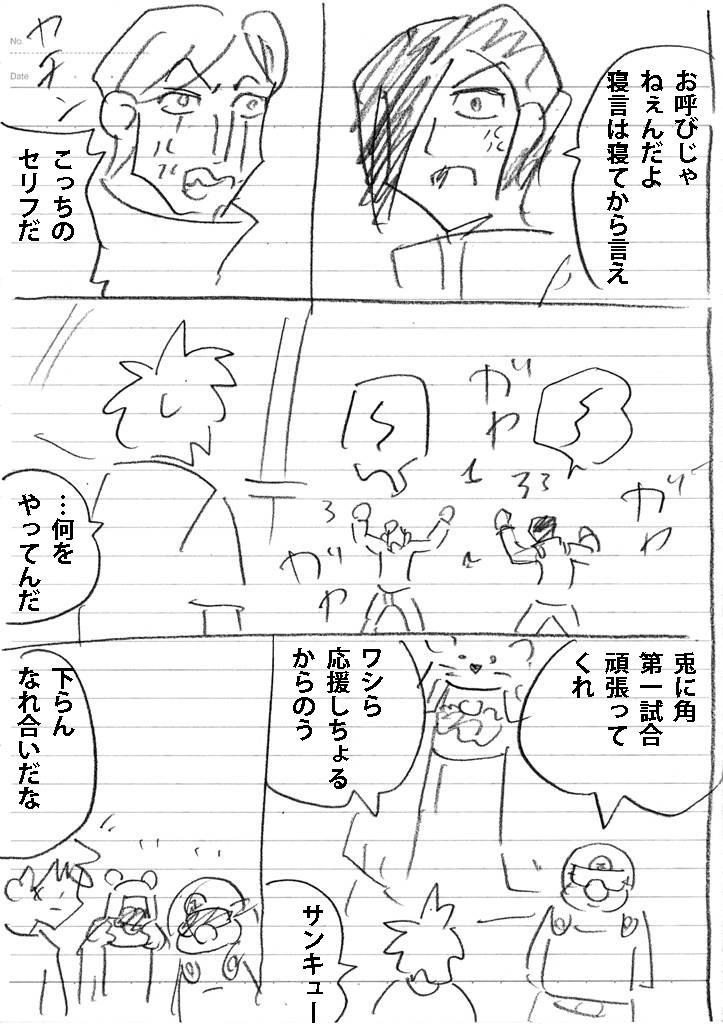 No.
Date
お呼びじゃ
ねぇんだよ
寝言は寝てから言え
こっちの
セリフだ
ガヤ
ガヤ
ガヤ
…何を
やってんだ
兎に角
第一試合
頑張って
くれ
ワシら
応援しちょる
からのう
サンキュー
下らん
なれ合いだな